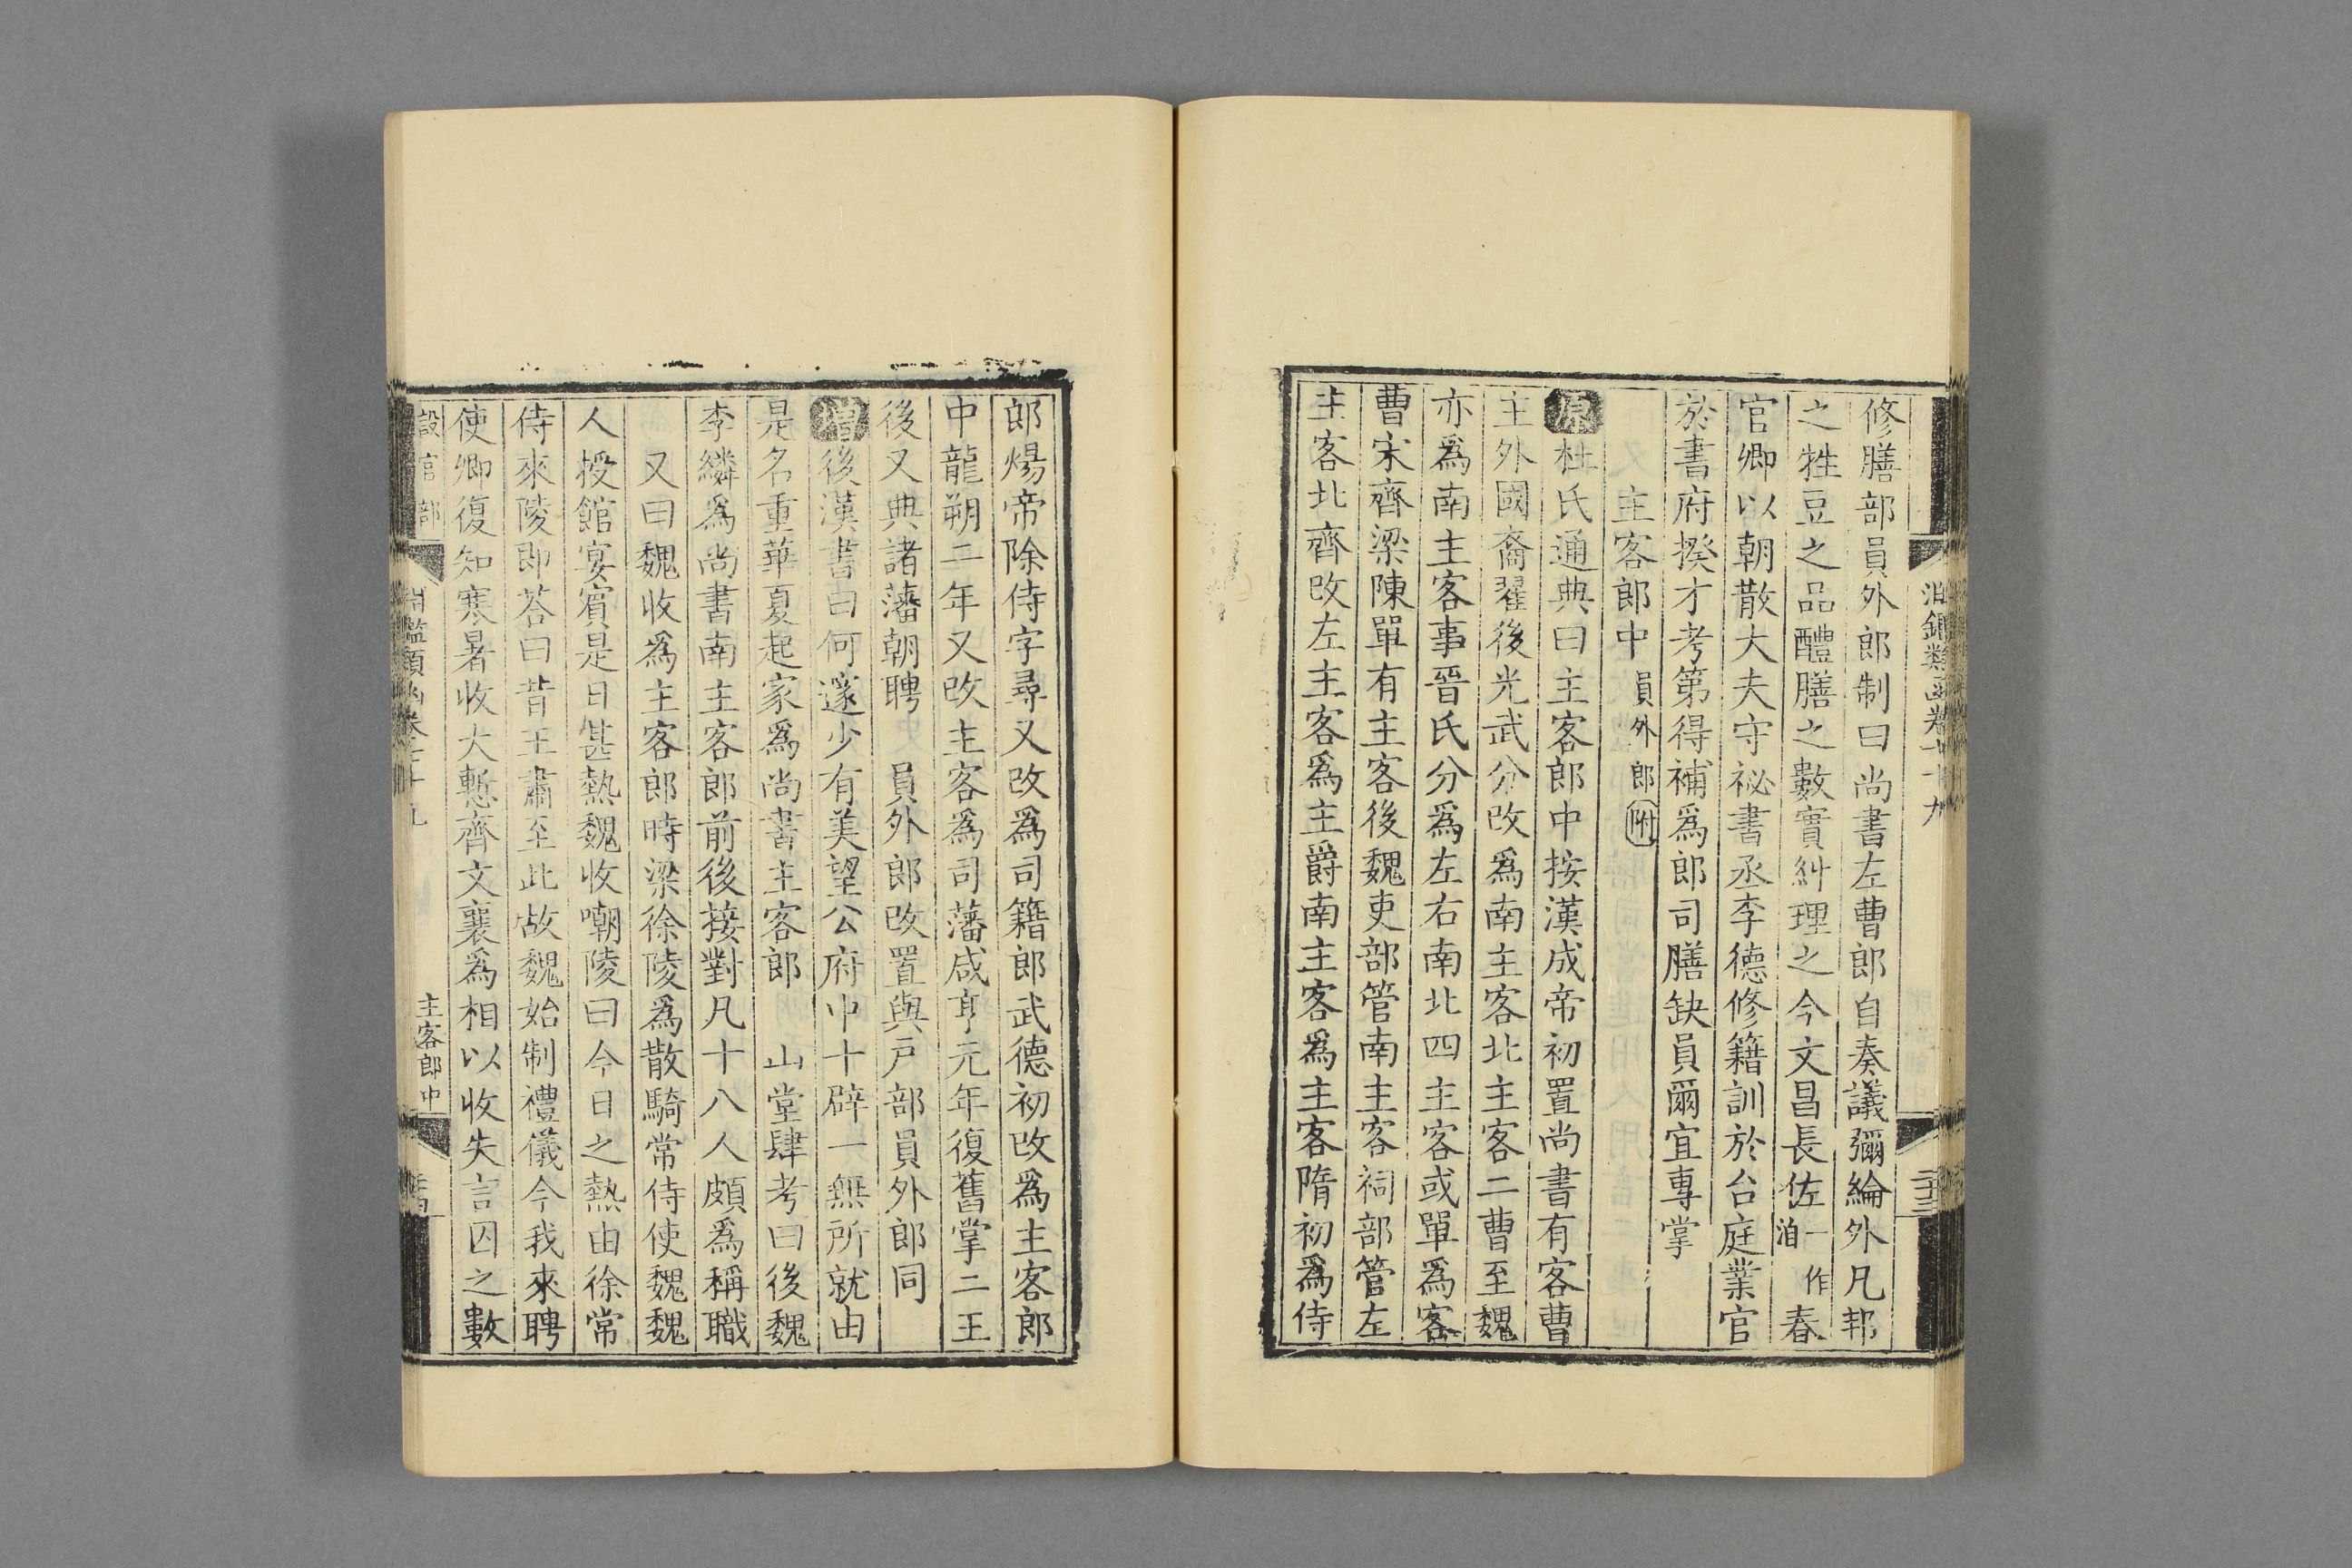 修膳部員外郎制曰尚書左曹郎自奏議彌綸外凡邦
之牲豆之品醴膳之數實糾理之今文昌長佐一作洎春
官卿以朝散大夫守祕書丞李德修籍訓於台庭業官
於書府揆才考第得補爲郎司膳缺員爾宜專掌
主客郎中員外郎附
原杜氏通典曰主客郎中按漢成帝初置尚書有客曹
主外國裔翟後光武分改爲南主客北主客二曹至魏
亦爲南主客事晉氏分爲左右南北四主客或單爲客
曹宋齊梁陳單有主客後魏吏部管南主客祠部管左
主客北齊改左主客爲主爵南主客爲主客隋初爲侍
郎煬帝除侍字尋又改爲司籍郎武德初改爲主客郎
中龍朔二年又改主客爲司藩咸亨元年復舊掌二王
後又典諸藩朝聘 員外郎改置與戸部員外郎同
增後漢書曰何邃少有美望公府中十辟一無所就由
是名重華夏起家爲尚書主客郎 山堂肆考曰後魏
李繗爲尚書南主客郎前後接對凡十八人頗爲稱職
又曰魏收爲主客郎時梁徐陵爲散騎常侍使魏魏
人授館宴賓是日甚熱魏收嘲陵曰今日之熱由徐常
侍來陵即荅曰昔王肅至此故魏始制禮儀今我來聘
使卿復知寒暑收大慙齊文襄爲相以收失言囚之數
設官部 淵鑑類函卷七十九 主客郎中